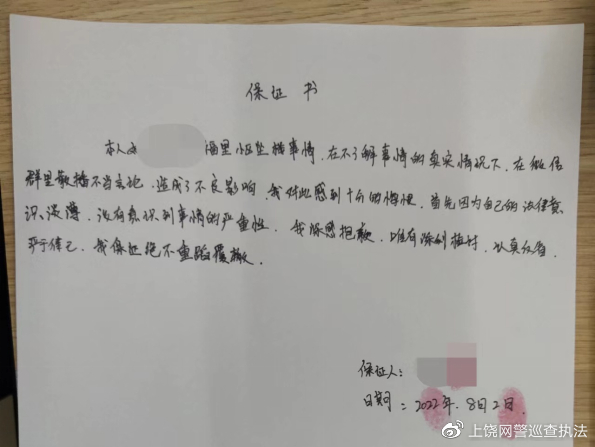 保证书
本人因 福里小区坠楼事情，在不了解事情的真实情况下，在微信
群里散播不当言论，造成了不良影响，我对此感到十分的悔恨，首先因为自己的法律意
识淡薄，没有意识到事情的严重性，我深感抱歉，唯有深刻检讨，认真反省，
严于律己，我保证绝不重蹈覆辙，
保证人：
日期：2022年.8月2日.
@上饶网警巡查执法